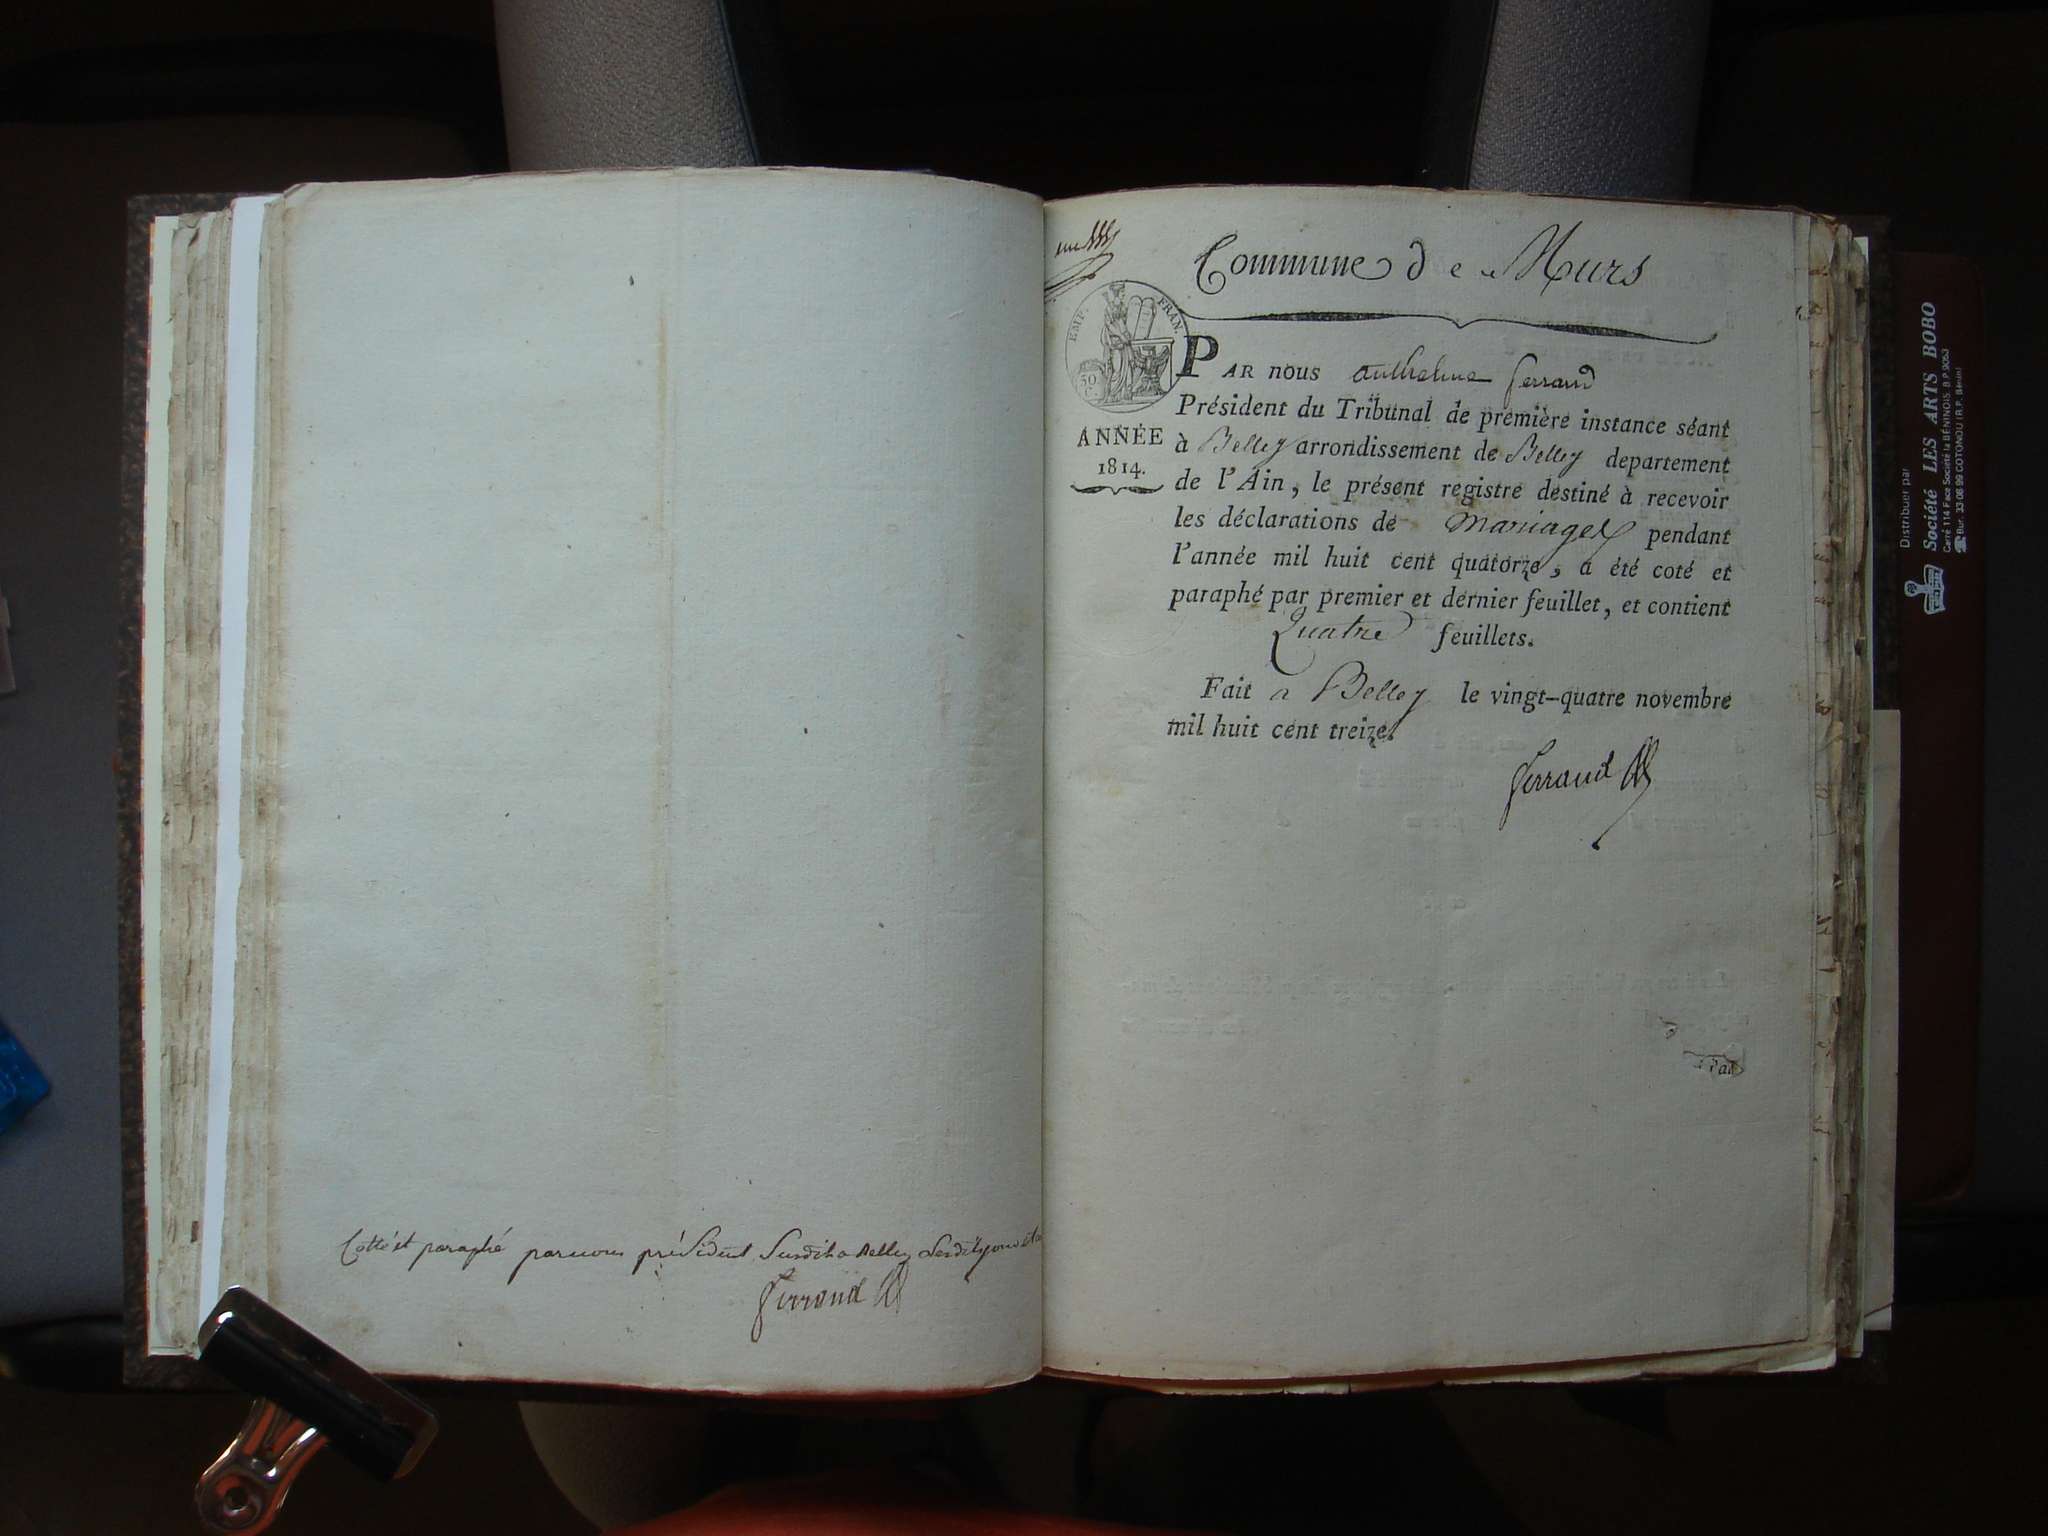 Cotté et paraphé par nous président Susdit a Belley
Ferrand
Commune de Murs
EMP. FRAN.
50 C.
ANNÉE
1814.
PAR nous anthelme ferrand
Président du Tribunal de première instance séant
à Belley arrondissement de Belley departement
de l'Ain, le présent registre destiné à recevoir
les déclarations de mariages pendant
l'année mil huit cent quatorze, a été coté et
paraphé par premier et dernier feuillet, et contient
Quatre feuillets.
Fait a Belley le vingt-quatre novembre
mil huit cent treize.
ferrand
Distribuer par
Société LES ARTS BOBO
Carré 114 Face Société la BÉNINOIS B.P. 9053
Bur. 33-08 99 COTONOU (R.P. Bénin)